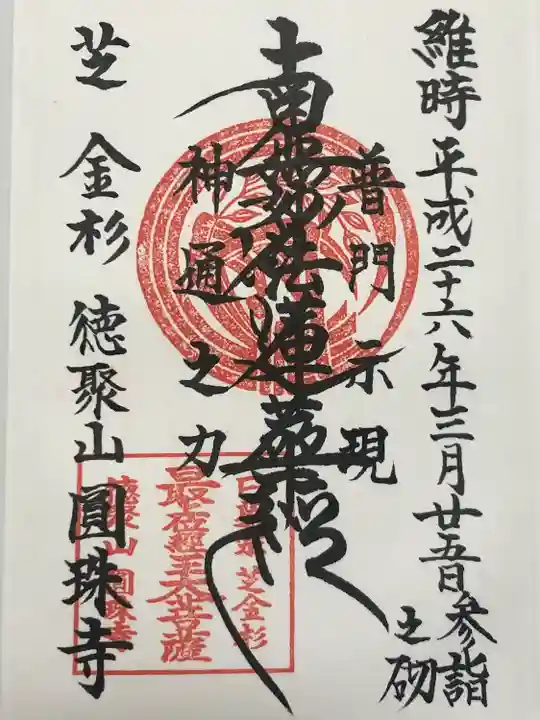 維時平成二十六年三月廿五日参詣
之砌
普門示現
南無妙法蓮華経
神通之力
芝 金杉 徳聚山 圓珠寺
芝金杉
最上位経王大菩薩
徳聚山 圓珠寺